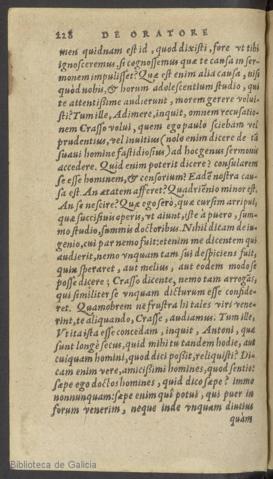 228 DE ORATORE
men quidnam est id, quod dixisti, fore vt tibi
ignosceremus, si cognossemus que te causa in ser-
monem impulisset? Quæ est enim alia causa, nisi
quòd nobis, & horum adolescentium studio, qui
te attentissime audierunt, morem gerere volui-
sti? Tum ille, Adimere, inquit, omnem recusatio-
nem Crasso volui, quem ego paulo sciebam vel
prudentius, vel inuitius (nolo enim dicere de tã
suaui homine fastidiosius) ad hoc genus sermonis
accedere. Quid enim poterit dicere? consularem
se esse hominem, & censorium? Eadẽ nostra cau-
sa est. An ætatem afferet? Quadriẽnio minor est.
An se nescire? Quæ ego serò, quæ cursim arripui,
quæ succisiuis operis, vt aiunt, iste à puero, sum-
mo studio, summis doctoribus. Nihil dicam de in-
genio, cui par nemo fuit: etenim me dicentem qui
audierit, nemo vnquam tam sui despiciens fuit,
quin speraret, aut melius, aut eodem modo se
posse dicere; Crasso dicente, nemo tam arrogãs,
qui similiter se vnquam dicturum esse confide-
ret. Quamobrem ne frustra hi tales viri vene-
rint, te aliquando, Crasse, audiamus. Tum ille,
Vt ita ista esse concedam, inquit, Antoni, quæ
sunt longè secus, quid mihi tu tandem hodie, aut
cuiquam homini, quod dici possit, reliquisti? Di-
cam enim vere, amicissimi homines, quod sentio:
sæpe ego doctos homines, quid dico sæpe? immo
nonnunquam: sæpe enim quî potui, qui puer in
forum venerim, neque inde vnquam diutius
quàm
Biblioteca de Galicia